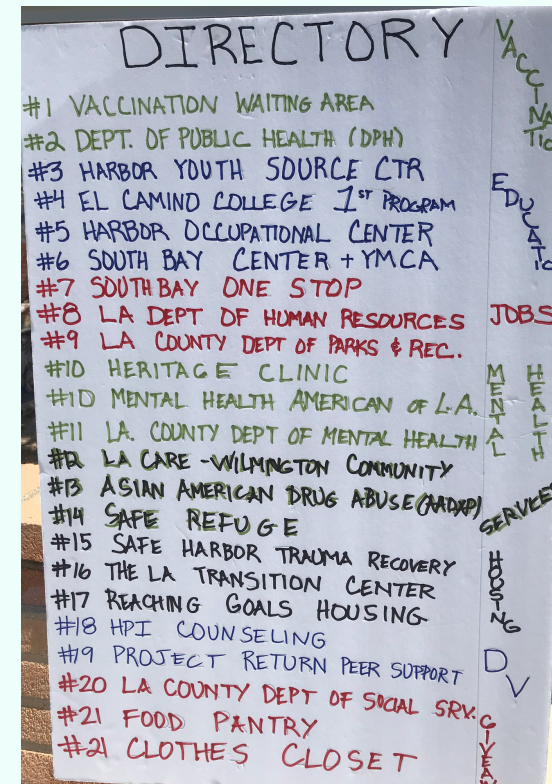 DIRECTORY
#1 VACCINATION WAITING AREA
#2 DEPT. OF PUBLIC HEALTH (DPH)
#3 HARBOR YOUTH SOURCE CTR
#4 EL CAMINO COLLEGE 1ST PROGRAM
#5 HARBOR OCCUPATIONAL CENTER
#6 SOUTH BAY CENTER + YMCA
#7 SOUTH BAY ONE STOP
#8 LA DEPT OF HUMAN RESOURCES
#9 LA COUNTY DEPT OF PARKS & REC.
#10 HERITAGE CLINIC
#10 MENTAL HEALTH AMERICAN OF L.A.
#11 LA. COUNTY DEPT OF MENTAL HEALTH
#12 LA CARE - WILMINGTON COMMUNITY
#13 ASIAN AMERICAN DRUG ABUSE (AADAP)
#14 SAFE REFUGE
#15 SAFE HARBOR TRAUMA RECOVERY
#16 THE LA TRANSITION CENTER
#17 REACHING GOALS HOUSING
#18 HPI COUNSELING
#19 PROJECT RETURN PEER SUPPORT
#20 LA COUNTY DEPT OF SOCIAL SRV.
#21 FOOD PANTRY
#21 CLOTHES CLOSET
VACCINATIO
EDUCATIO
JOBS
MENTAL
HEALTH
SERVICES
HOUSING
DV